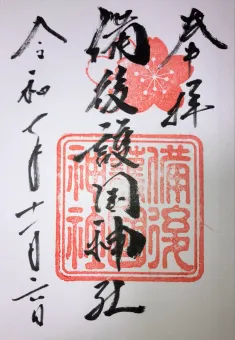 奉拝
備後護国神社
令和七年十一月二日
備後護國神社